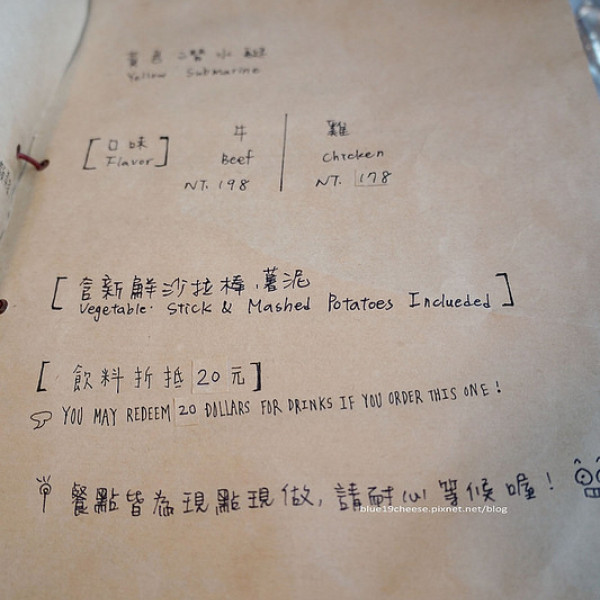 黃色潛水艇
Yellow Submarine
[口味] 牛 雞
Flavor Beef Chicken
NT. 198 NT. 178
[含新鮮沙拉棒、薯泥]
Vegetable Stick & Mashed Potatoes Inclueded
[飲料折抵 20 元]
YOU MAY REDEEM 20 DOLLARS FOR DRINKS IF YOU ORDER THIS ONE!
餐點皆為現點現做,請耐心等候喔!
blue19cheese.pixnet.net/blog